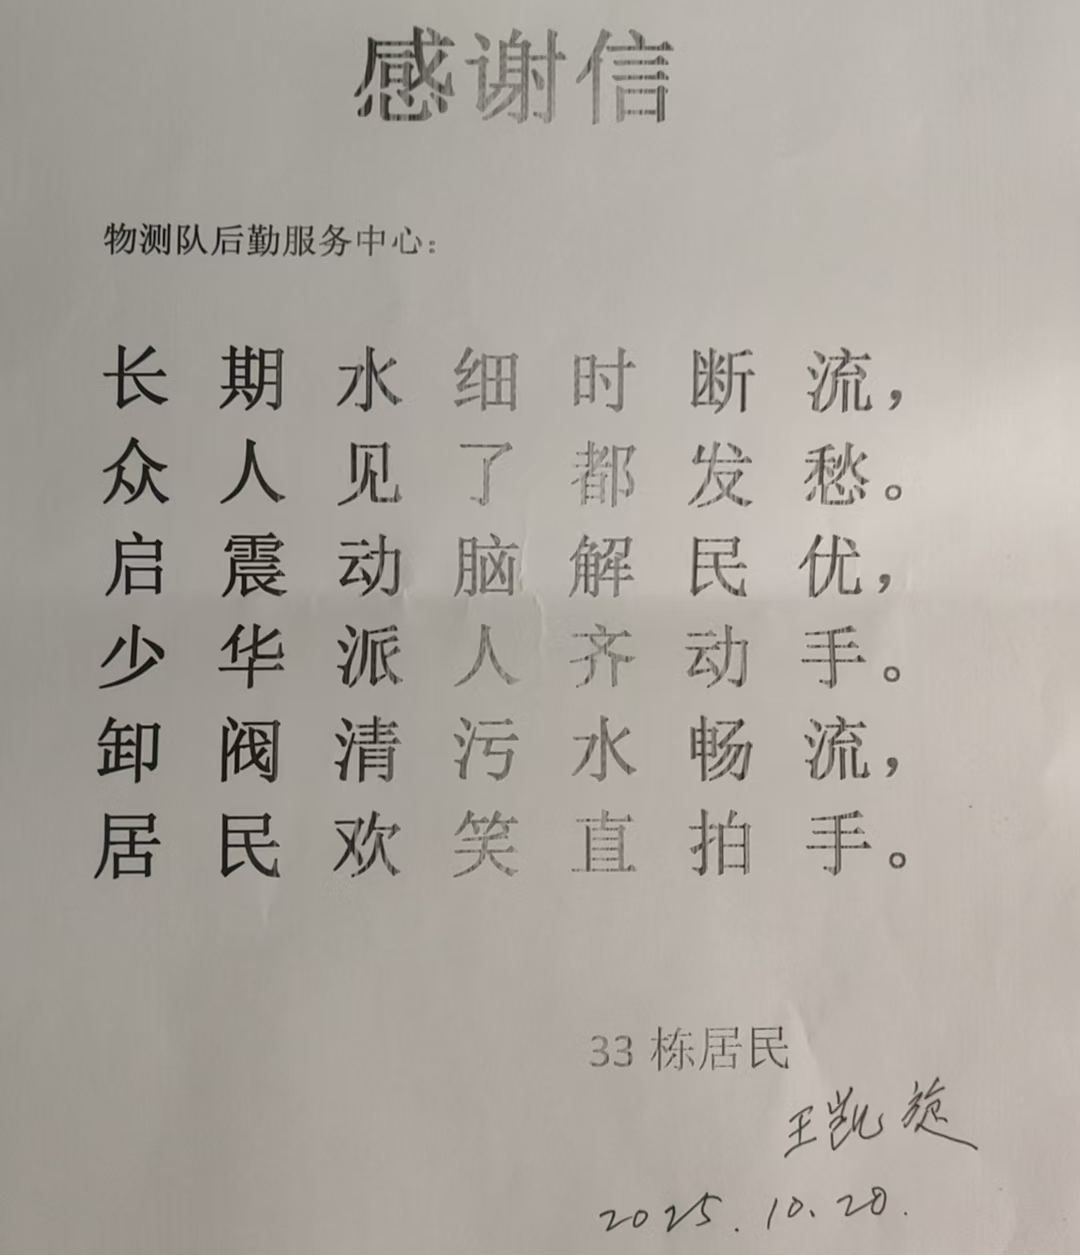 感谢信
物测队后勤服务中心：
长期水细时断流，
众人见了都发愁。
启震动脑解民优，
少华派人齐动手。
卸阀清污水畅流，
居民欢笑直拍手。
33 栋居民
王凯旋
2025.10.20.